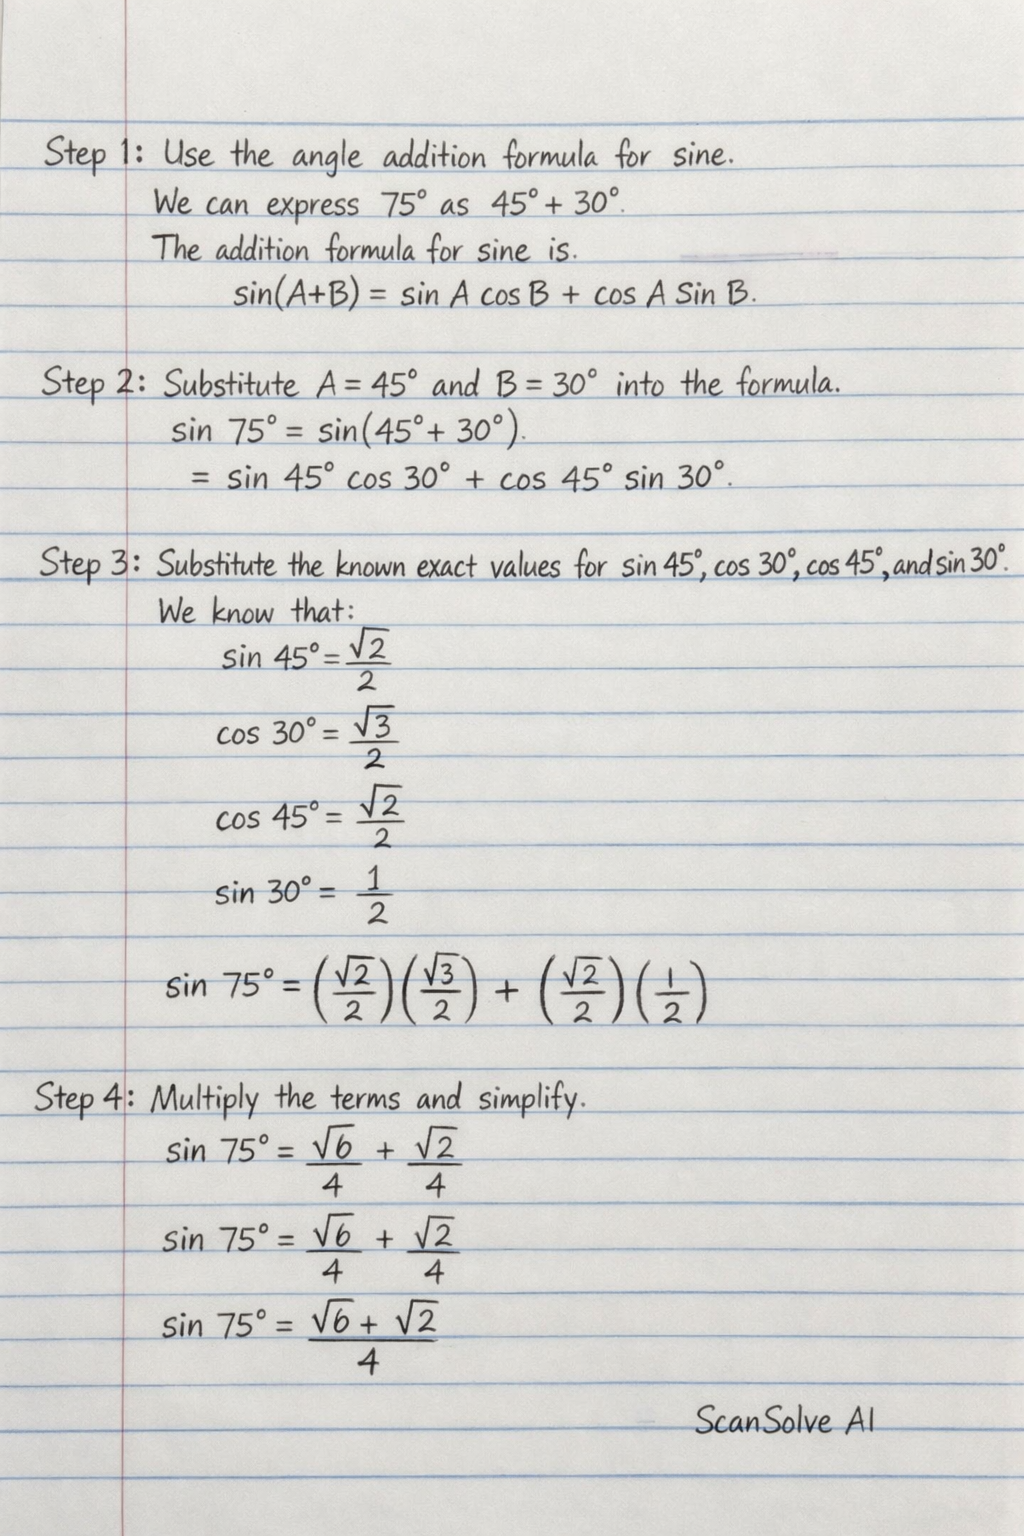 Step 1: Use the angle addition formula for sine.
We can express 75° as 45° + 30°.
The addition formula for sine is.
sin(A+B) = sin A cos B + cos A Sin B.
Step 2: Substitute A = 45° and B = 30° into the formula.
sin 75° = sin(45° + 30°).
= sin 45° cos 30° + cos 45° sin 30°.
Step 3: Substitute the known exact values for sin 45°, cos 30°, cos 45°, and sin 30°.
We know that:
sin 45° = √2/2
cos 30° = √3/2
cos 45° = √2/2
sin 30° = 1/2
sin 75° = (√2/2)(√3/2) + (√2/2)(1/2)
Step 4: Multiply the terms and simplify.
sin 75° = √6/4 + √2/4
sin 75° = √6/4 + √2/4
sin 75° = (√6 + √2)/4
ScanSolve AI